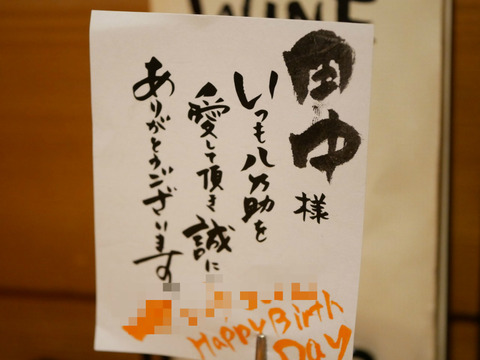 WINE
田中様
いつも八乃助を
愛して頂き誠に
ありがとうございます
Happy Birth
Day